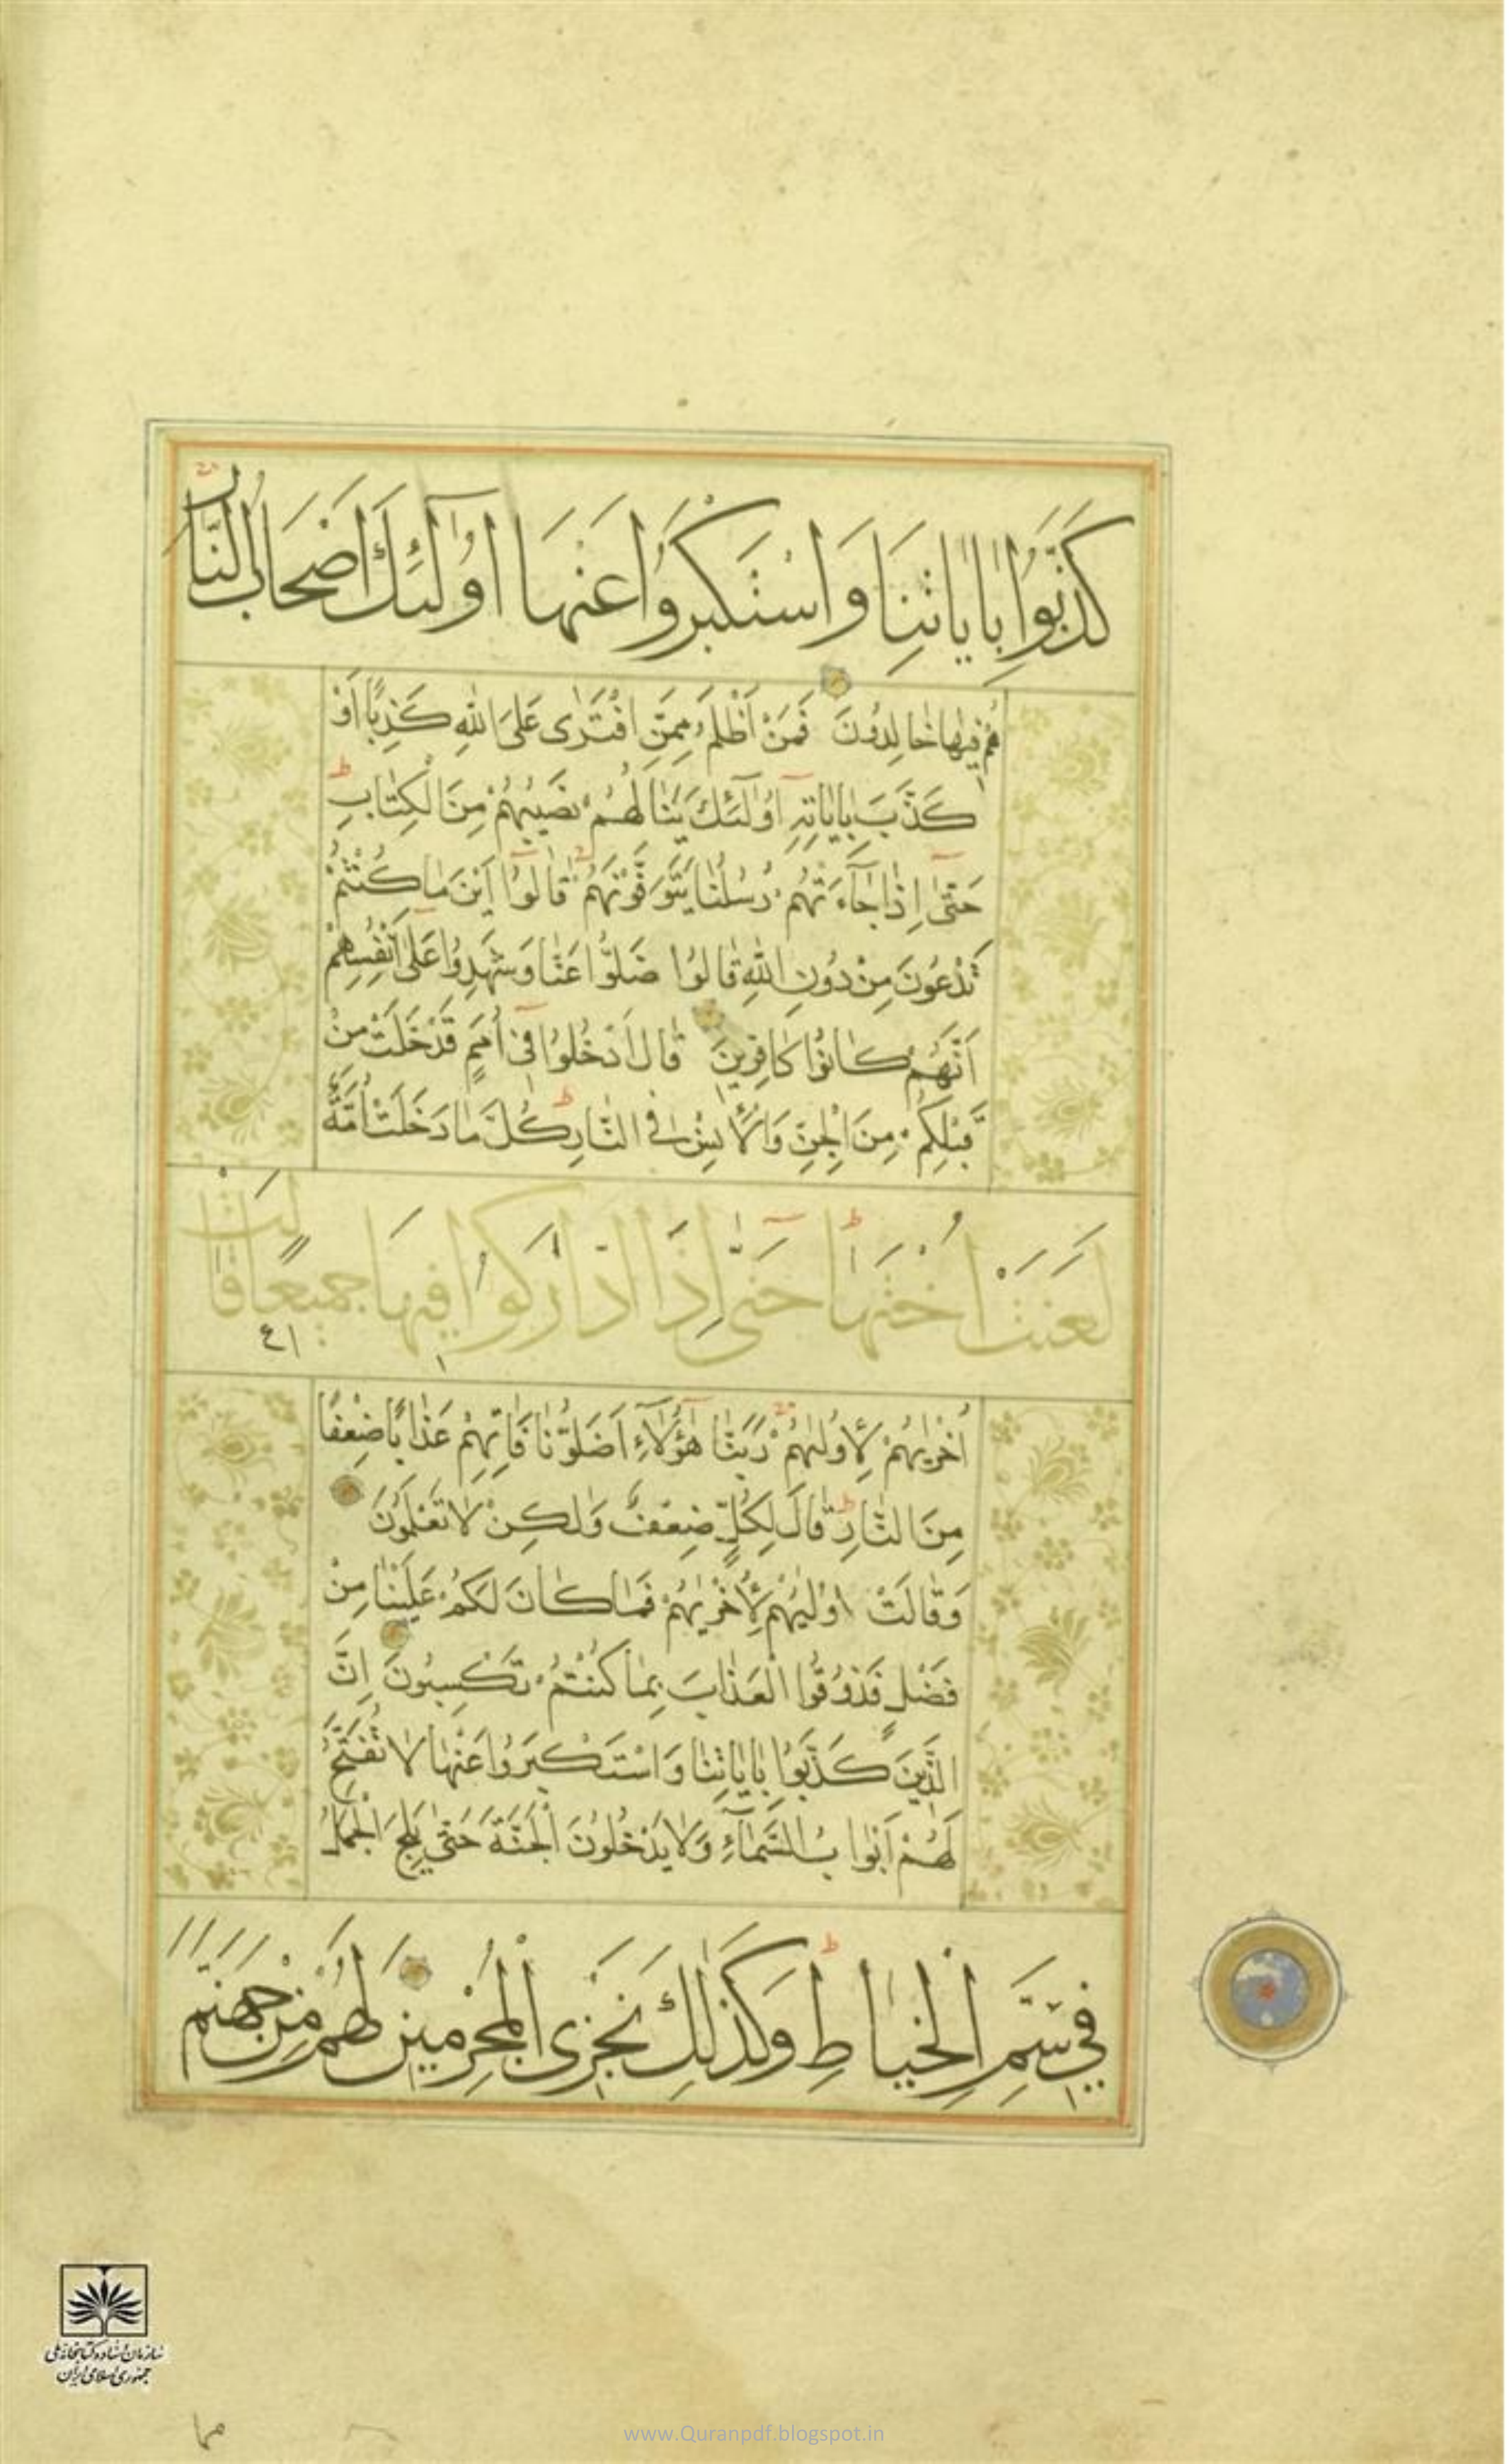 كَذَّبُوا بِاٰيٰاتِنٰا وَاسْتَكْبَرُوا عَنْهٰا اُولٰٓئِكَ اَصْحٰابُ النّٰارِ
هُمْ فِيهٰا خٰالِدُونَ فَمَنْ اَظْلَمُ مِمَّنِ افْتَرٰى عَلَى اللّٰهِ كَذِبًا اَوْ
كَذَّبَ بِاٰيٰاتِهِ اُولٰٓئِكَ يَنٰالُهُمْ نَصِيبُهُمْ مِنَ الْكِتٰابِ
حَتّٰى اِذٰا جٰٓاءَتْهُمْ رُسُلُنٰا يَتَوَفَّوْنَهُمْ قٰالُوا اَيْنَ مٰا كُنْتُمْ
تَدْعُونَ مِنْ دُونِ اللّٰهِ قٰالُوا ضَلُّوا عَنّٰا وَشَهِدُوا عَلٰى اَنْفُسِهِمْ
اَنَّهُمْ كٰانُوا كٰافِرِينَ قٰالَ ادْخُلُوا فِى اُمَمٍ قَدْ خَلَتْ مِنْ
قَبْلِكُمْ مِنَ الْجِنِّ وَالْاِنْسِ فِى النّٰارِ كُلَّمٰا دَخَلَتْ اُمَّةٌ
لَعَنَتْ اُخْتَهٰا حَتّٰى اِذَا ادّٰارَكُوا فِيهٰا جَمِيعًا قٰالَتْ
اُخْرٰيهُمْ لِاُولٰيهُمْ رَبَّنٰا هٰٓؤُلٰٓاءِ اَضَلُّونٰا فَاٰتِهِمْ عَذٰابًا ضِعْفًا
مِنَ النّٰارِ قٰالَ لِكُلٍّ ضِعْفٌ وَلٰكِنْ لٰا تَعْلَمُونَ
وَقٰالَتْ اُولٰيهُمْ لِاُخْرٰيهُمْ فَمٰا كٰانَ لَكُمْ عَلَيْنٰا مِنْ
فَضْلٍ فَذُوقُوا الْعَذٰابَ بِمٰا كُنْتُمْ تَكْسِبُونَ اِنَّ
الَّذِينَ كَذَّبُوا بِاٰيٰاتِنٰا وَاسْتَكْبَرُوا عَنْهٰا لٰا تُفَتَّحُ
لَهُمْ اَبْوٰابُ السَّمٰٓاءِ وَلٰا يَدْخُلُونَ الْجَنَّةَ حَتّٰى يَلِجَ الْجَمَلُ
فِى سَمِّ الْخِيٰاطِ وَكَذٰلِكَ نَجْزِى الْمُجْرِمِينَ لَهُمْ مِنْ جَهَنَّمَ
سازمان اسناد و کتابخانه ملی
جمهوری اسلامی ایران
www.Quranpdf.blogspot.in